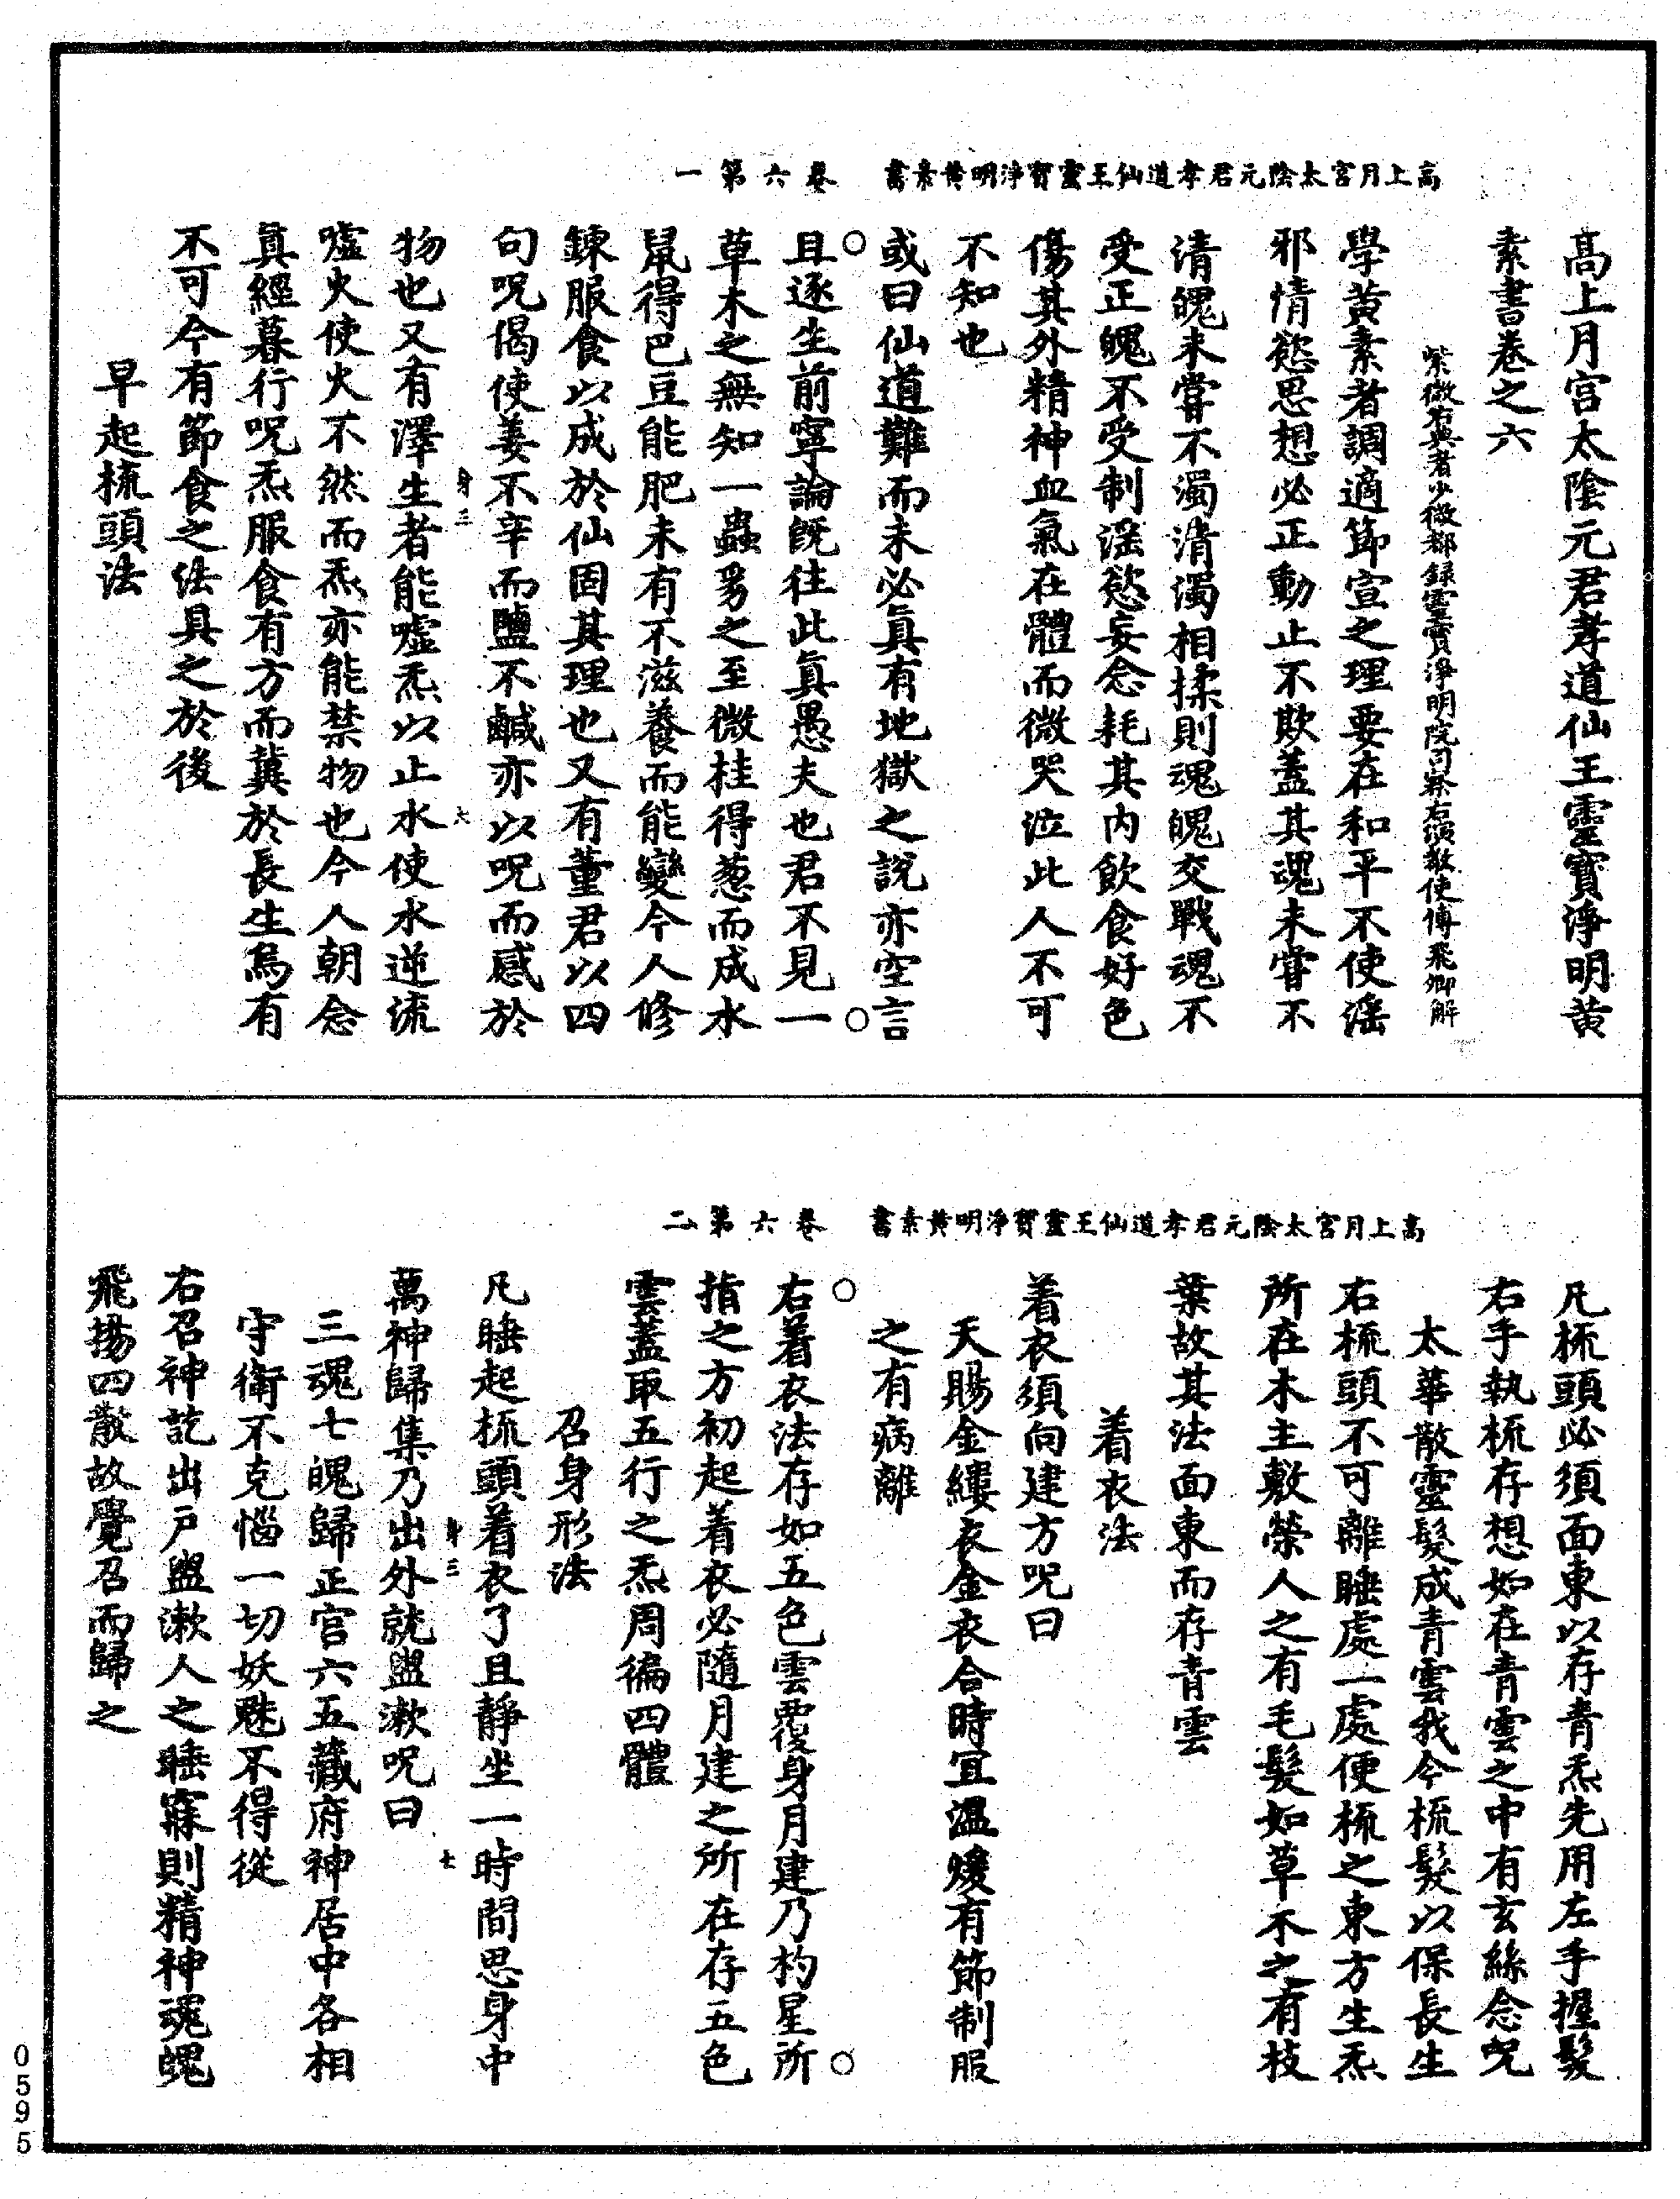 高上月宫太陰元君孝道仙王靈寶淨明黄素書　卷六第一
高上月宫太陰元君孝道仙王靈寶淨明黄
素書卷之六
紫微右典者少微都録靈寶淨明院司察右演教使傅飛卿解
學黄素者調適節宣之理要在和平不使滛
邪情慾思想必正動止不欺蓋其魂未甞不
清魄未甞不濁清濁相揉則魂魄交戰魂不
受正魄不受制滛慾妄念耗其内飲食好色
傷其外精神血氣在體而微哭泣此人不可
不知也
或曰仙道難而未必真有地獄之說亦空言
且逐生前寧論旣往此真愚夫也君不見一
草木之無知一蟲豸之至微桂得葱而成水
鼠得巴豆能肥未有不滋養而能變今人修
鍊服食以成於仙固其理也又有董君以四
句呪偈使姜不辛而鹽不鹹亦以呪而感於
物也又有澤生者能噓炁以止水使水逆流
噓火使火不然而炁亦能禁物也今人朝念
真經暮行呪炁服食有方而冀於長生烏有
不可今有節食之法具之於後
早起梳頭法
身三
六
高上月宫太陰元君孝道仙王靈寶淨明黄素書　卷六第二
凡梳頭必須面東以存青炁先用左手握髮
右手執梳存想如在青雲之中有玄絲念呪
太華散靈髮成青雲我今梳髮以保長生
右梳頭不可離睡處一處便梳之東方生炁
所在木主敷榮人之有毛髮如草木之有枝
葉故其法面東而存青雲
着衣法
着衣須向建方呪曰
天賜金縷衣金衣合時宜溫煖有節制服
之有病離
右着衣法存如五色雲覆身月建乃杓星所
指之方初起着衣必隨月建之所在存五色
雲蓋取五行之炁周徧四體
召身形法
凡睡起梳頭着衣了且靜坐一時間思身中
萬神歸集乃出外就盥漱呪曰
三魂七魄歸正宫六五藏府神居中各相
守衛不克惱一切妖魅不得從
右召神訖出戶盥漱人之睡寐則精神魂魄
飛揚四散故覺召而歸之
身三
七
0595